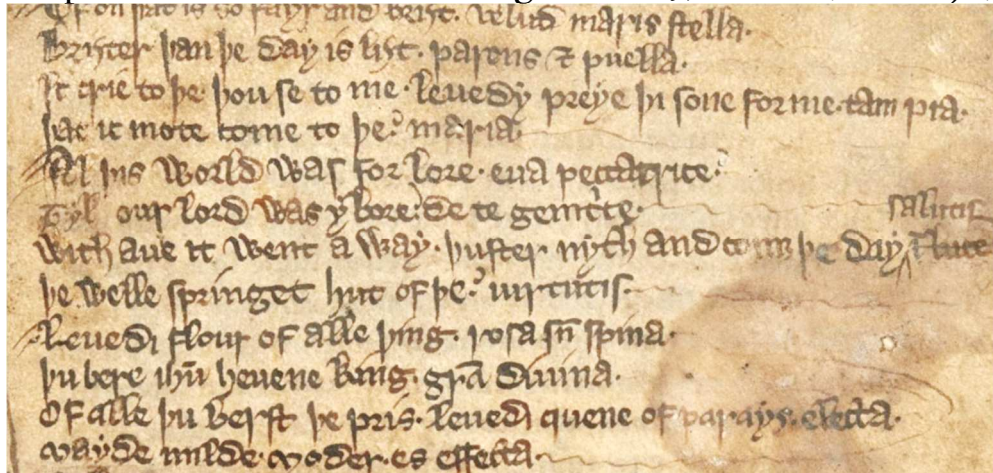 Of on þat is so fayr and briȝt. velud maris stella.
Briȝter þan þe day is liȝt. parens ⁊ puella.
Ic crie to þe. þou se to me. leuedy preye þi sone for me. tam pia.
þat ic mote come to þe. maria.
Al þis world was for lore. eua peccatrice.
Tyl our lord was y bore. de te genitrice.
With aue it went a way. þuster nyth and comȝ þe day salutis
þe welle springet hut of þe. uirtutis.
Leuedi flour of alle þing. rosa sn̄ spina.
þu bere ihū heuene king. gr̄a diuina.
Of alle þu berst þe pris. leuedi quene of parays. electa.
mayde milde. moder. es effecta.